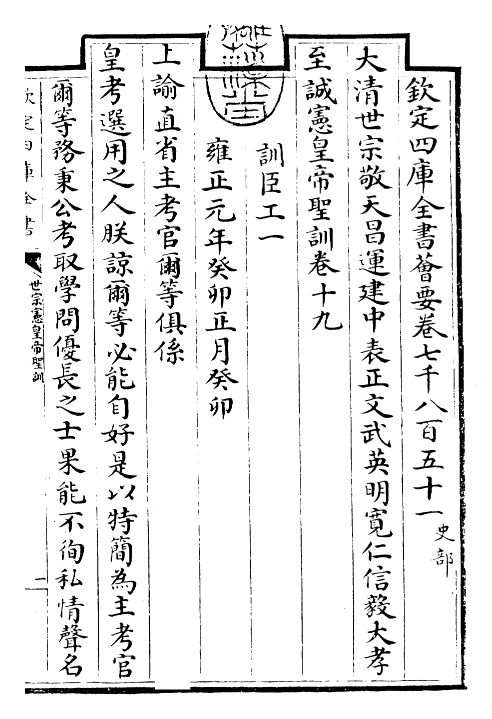 欽定四庫全書薈要卷七千八百五十一 史部
大清世宗敬天昌運建中表正文武英明寬仁信毅大孝
至誠憲皇帝聖訓卷十九
訓臣工一
雍正元年癸卯正月癸卯
上諭直省主考官爾等俱係
皇考選用之人朕諒爾等必能自好是以特簡為主考官
爾等務秉公考取學問優長之士果能不徇私情聲名
欽定四庫全書
世宗憲皇帝聖訓
一